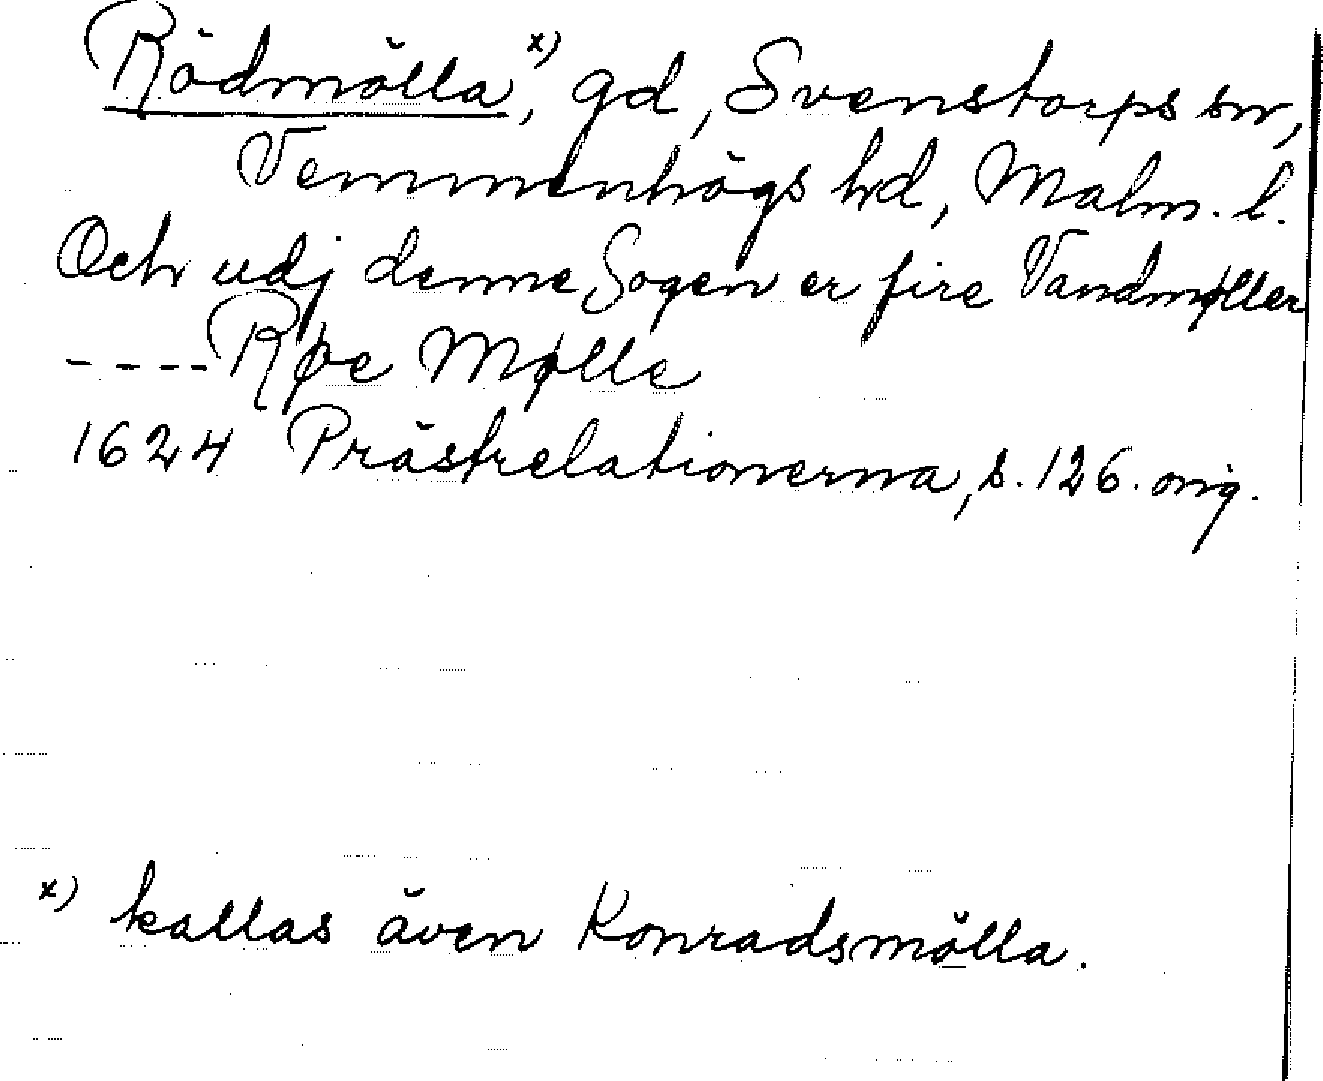 Rödmölla x), gd, Svenstorps sn,
Vemmenhögs hd, Malm. l.
Och udj denne Sogen er fire Vandmøller
---- Røe Mølle
1624 Prästrelationerna, s. 126. orig.
x) kallas även Konradsmölla.